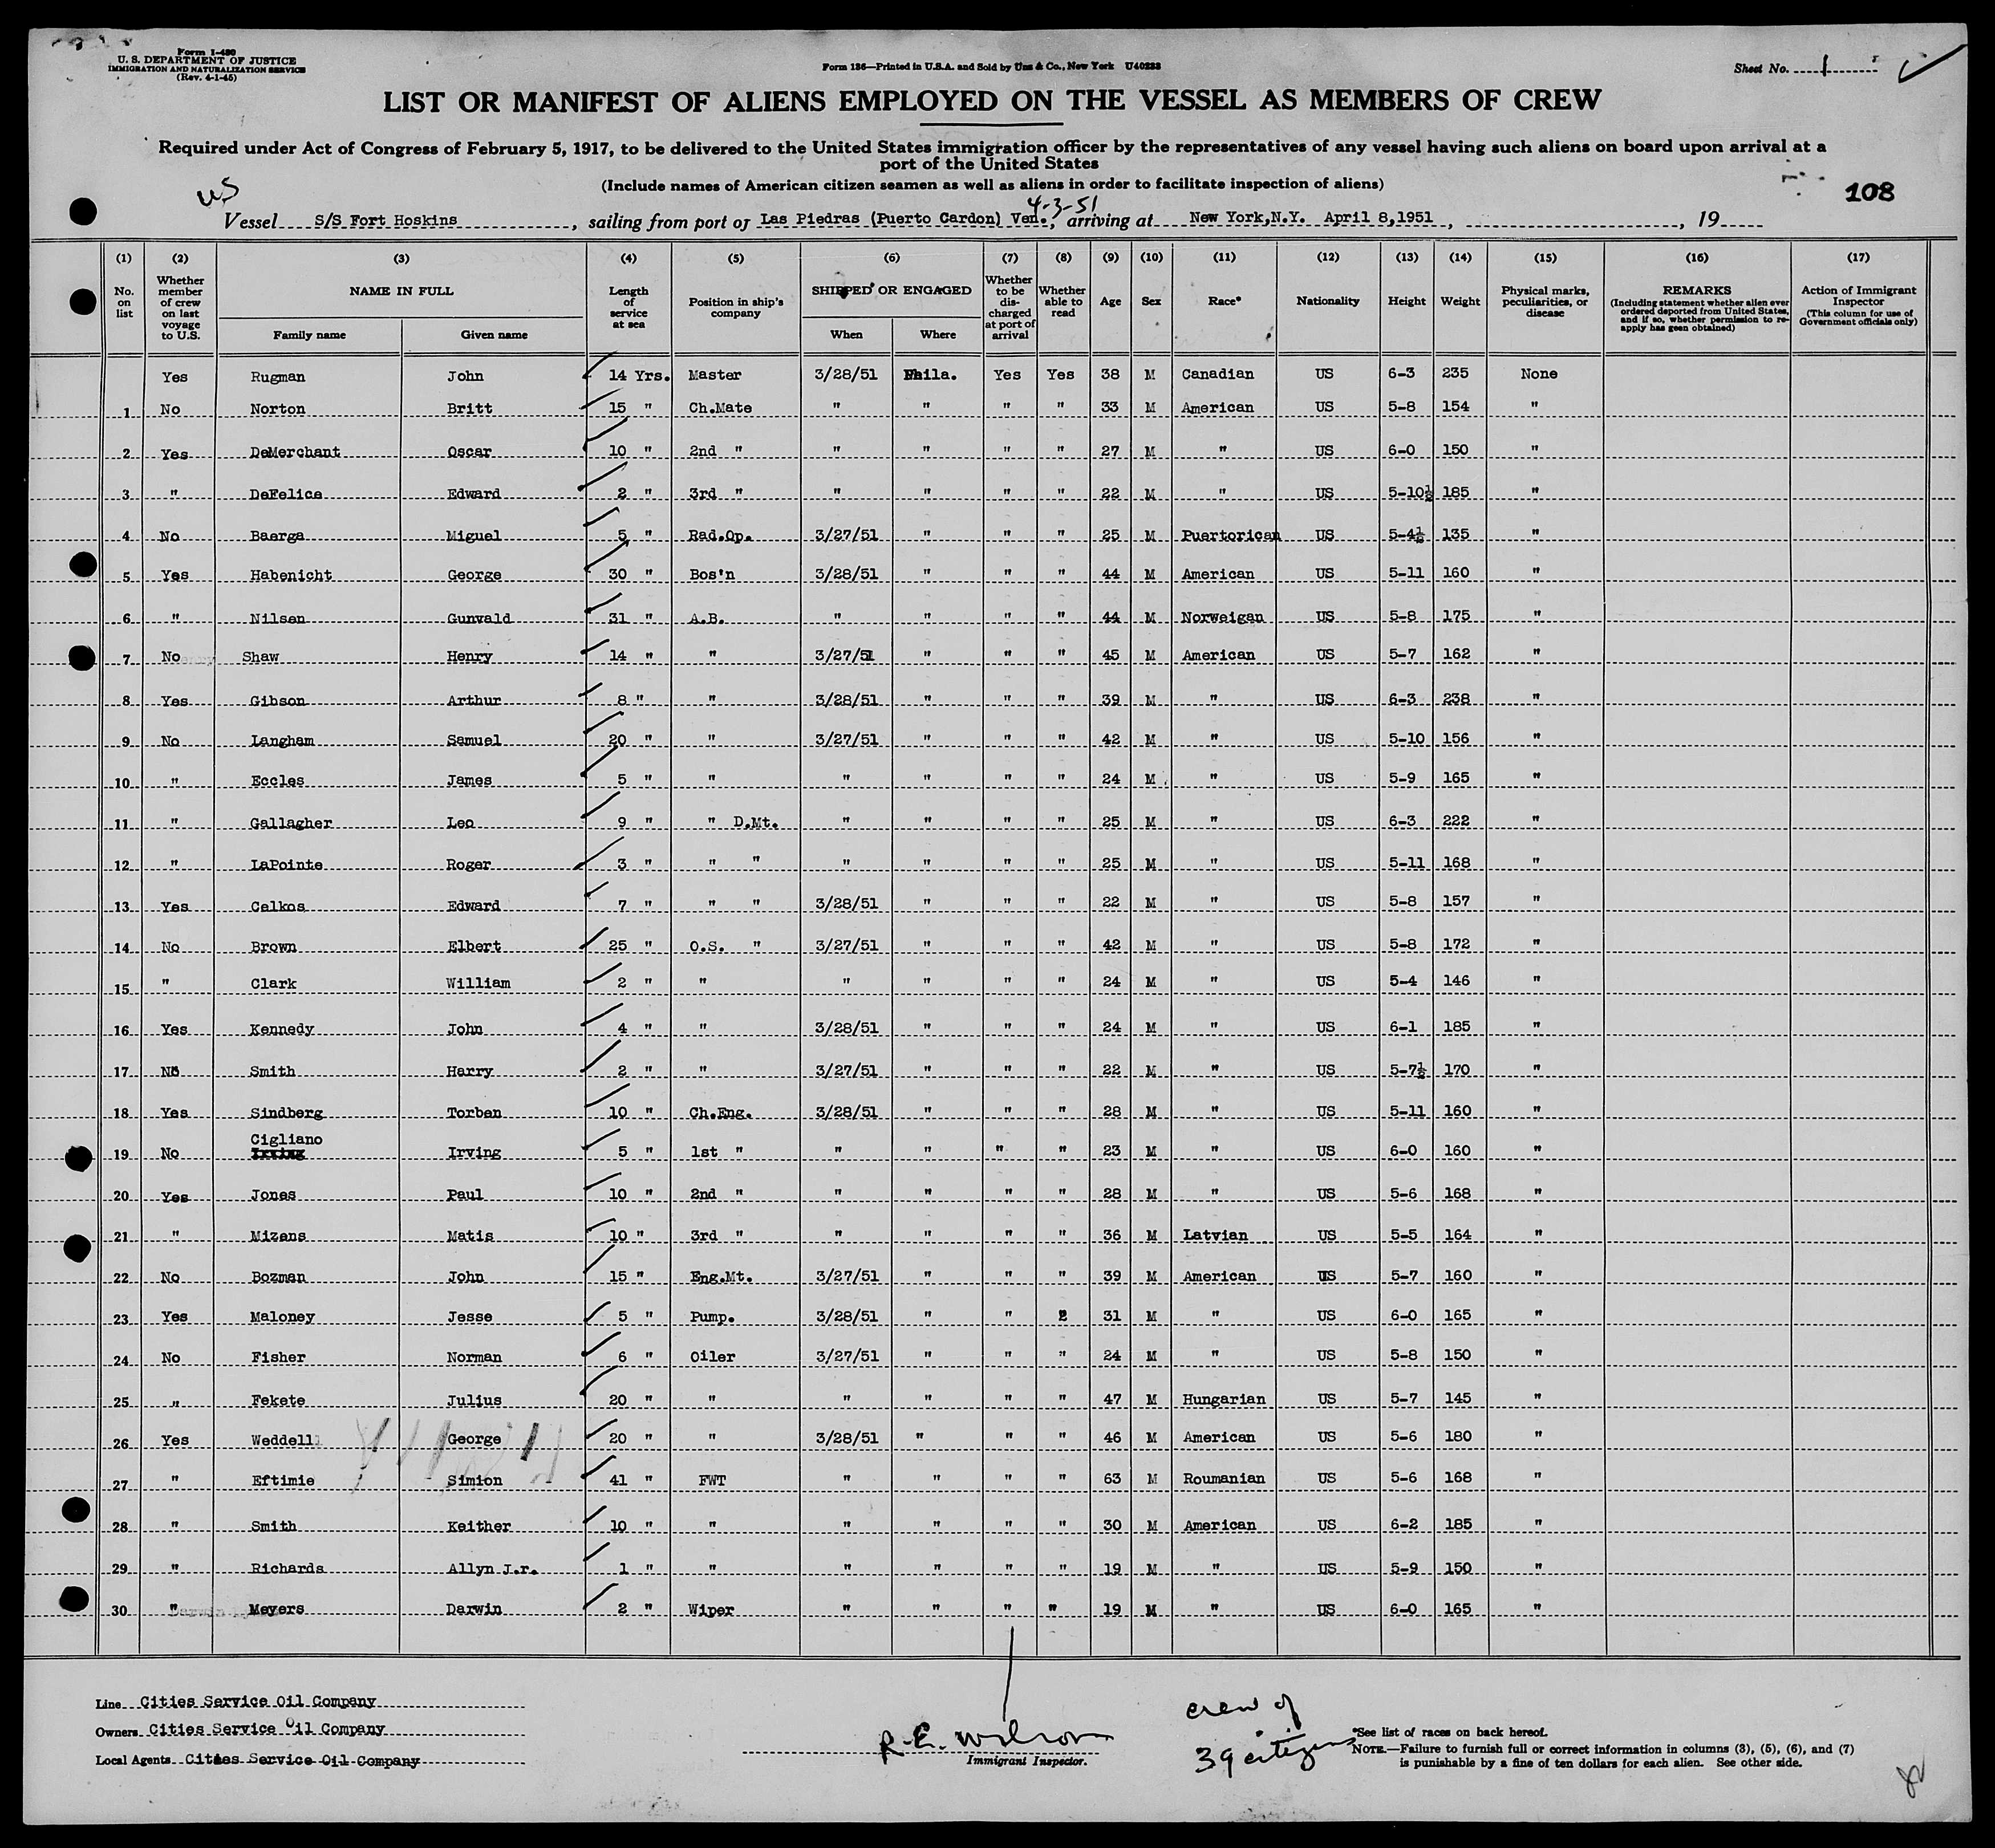 Form I-480
U. S. DEPARTMENT OF JUSTICE
IMMIGRATION AND NATURALIZATION SERVICE
(Rev. 4-1-45)
Form 136—Printed in U.S.A. and Sold by Unz & Co., New York U40233
Sheet No. 1
LIST OR MANIFEST OF ALIENS EMPLOYED ON THE VESSEL AS MEMBERS OF CREW
Required under Act of Congress of February 5, 1917, to be delivered to the United States immigration officer by the representatives of any vessel having such aliens on board upon arrival at a
port of the United States
(Include names of American citizen seamen as well as aliens in order to facilitate inspection of aliens)
108
US
4-3-51
Vessel S/S Fort Hoskins, sailing from port of Las Piedras (Puerto Cardon) Ven., arriving at New York,N.Y. April 8,1951, 19
(1) (2) (3) (4) (5) (6) (7) (8) (9) (10) (11) (12) (13) (14) (15) (16) (17)
No. on list
Whether member of crew on last voyage to U.S.
NAME IN FULL
Family name
Given name
Length of service at sea
Position in ship's company
SHIPPED OR ENGAGED
When
Where
Whether to be discharged at port of arrival
Whether able to read
Age
Sex
Race*
Nationality
Height
Weight
Physical marks, peculiarities, or disease
REMARKS
(Including statement whether alien ever ordered deported from United States, and if so, whether permission to re-apply has geen obtained)
Action of Immigrant Inspector
(This column for use of Government officials only)
Yes Rugman John 14 Yrs. Master 3/28/51 Phila. Yes Yes 38 M Canadian US 6-3 235 None
1 No Norton Britt 15 " Ch.Mate " " " " 33 M American US 5-8 154 "
2 Yes DeMerchant Oscar 10 " 2nd " " " " " 27 M " US 6-0 150 "
3 " DeFelice Edward 2 " 3rd " " " " " 22 M " US 5-10½ 185 "
4 No Baerga Miguel 5 " Rad.Op. 3/27/51 " " " 25 M Puertorican US 5-4½ 135 "
5 Yes Habenicht George 30 " Bos'n 3/28/51 " " " 44 M American US 5-11 160 "
6 " Nilsen Gunvald 31 " A.B. " " " " 44 M Norweigan US 5-8 175 "
7 No Shaw Henry 14 " " 3/27/51 " " " 45 M American US 5-7 162 "
8 Yes Gibson Arthur 8 " " 3/28/51 " " " 39 M " US 6-3 238 "
9 No Langham Samuel 20 " " 3/27/51 " " " 42 M " US 5-10 156 "
10 " Eccles James 5 " " " " " " 24 M " US 5-9 165 "
11 " Gallagher Leo 9 " " D.Mt. " " " " 25 M " US 6-3 222 "
12 " LaPointe Roger 3 " " " " " " " 25 M " US 5-11 168 "
13 Yes Celkos Edward 7 " " " 3/28/51 " " " 22 M " US 5-8 157 "
14 No Brown Elbert 25 " O.S. " 3/27/51 " " " 42 M " US 5-8 172 "
15 " Clark William 2 " " " " " " 24 M " US 5-4 146 "
16 Yes Kennedy John 4 " " 3/28/51 " " " 24 M " US 6-1 185 "
17 No Smith Harry 2 " " 3/27/51 " " " 22 M " US 5-7½ 170 "
18 Yes Sindberg Torben 10 " Ch.Eng. 3/28/51 " " " 28 M " US 5-11 160 "
19 No Cigliano Irving 5 " 1st " " " " " 23 M " US 6-0 160 "
20 Yes Jones Paul 10 " 2nd " " " " " 28 M " US 5-6 168 "
21 " Mizens Matis 10 " 3rd " " " " " 36 M Latvian US 5-5 164 "
22 No Bozman John 15 " Eng.Mt. 3/27/51 " " " 39 M American US 5-7 160 "
23 Yes Maloney Jesse 5 " Pump. 3/28/51 " " 31 M " US 6-0 165 "
24 No Fisher Norman 6 " Oiler 3/27/51 " " " 24 M " US 5-8 150 "
25 " Fekete Julius 20 " " " " " " 47 M Hungarian US 5-7 145 "
26 Yes Weddell George 20 " " 3/28/51 " " " 46 M American US 5-6 180 "
27 " Eftimie Simion 41 " FWT " " " " 63 M Roumanian US 5-6 168 "
28 " Smith Keither 10 " " " " " " 30 M American US 6-2 185 "
29 " Richards Allyn J.r. 1 " " " " " " 19 M " US 5-9 150 "
30 " Meyers Darwin 2 " Wiper " " " " 19 M " US 6-0 165 "
Line Cities Service Oil Company
Owners Cities Service Oil Company
Local Agents Cities Service Oil Company
R. E. Wilson
Immigrant Inspector.
crew of
39 citizens
*See list of races on back hereof.
NOTE.—Failure to furnish full or correct information in columns (3), (5), (6), and (7)
is punishable by a fine of ten dollars for each alien. See other side.